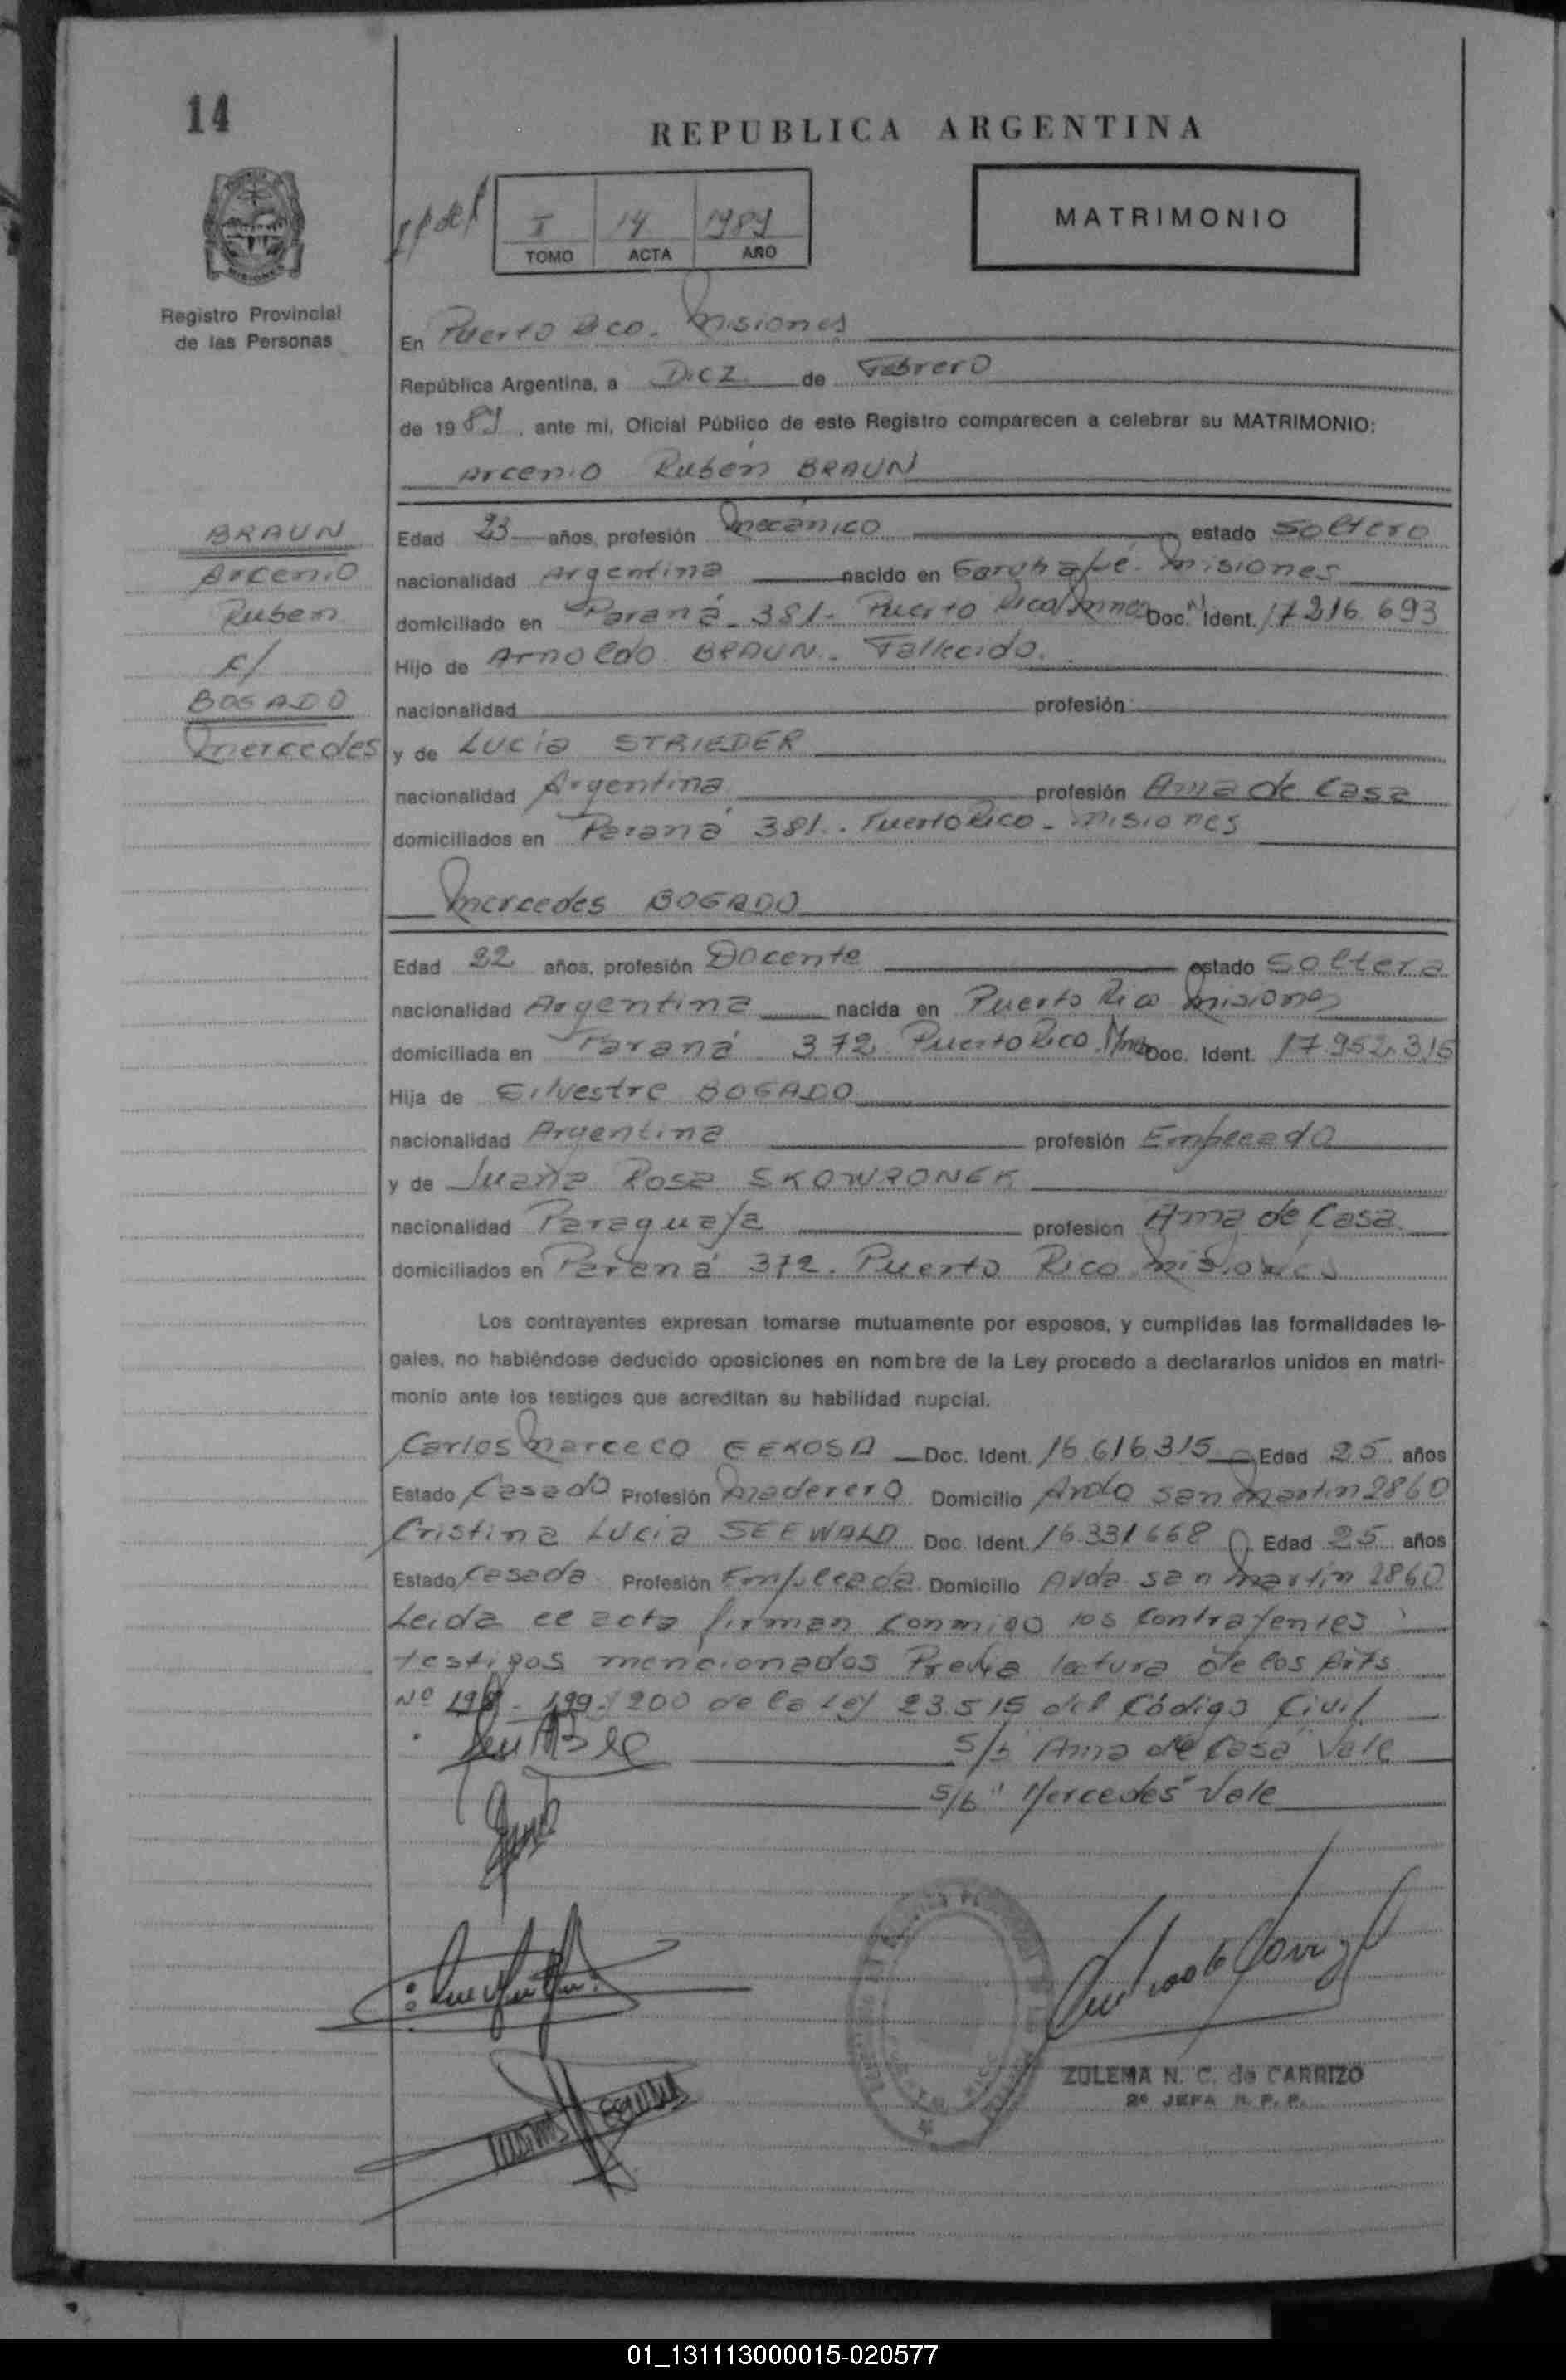 14
REPUBLICA ARGENTINA
I 14 1989
TOMO ACTA AÑO
MATRIMONIO
Registro Provincial
de las Personas
En Puerto Rico - Misiones
República Argentina, a Diez de Febrero
de 1989, ante mí, Oficial Público de este Registro comparecen a celebrar su MATRIMONIO:
Arcenio Rubén BRAUN
BRAUN
Arcenio
Ruben
c/
BOGADO
Mercedes
Edad 23 años, profesión Mecánico estado Soltero
nacionalidad Argentina nacido en Garuhapé. Misiones
domiciliado en Paraná 381- Puerto Rico Mnes Doc. Ident. 17216.693
Hijo de Arnoldo BRAUN. Fallecido.
nacionalidad profesión
y de Lucia STRIEDER
nacionalidad Argentina profesión Ama de Casa
domiciliados en Paraná 381. Puerto Rico - Misiones
Mercedes BOGADO
Edad 22 años, profesión Docente estado Soltera
nacionalidad Argentina nacida en Puerto Rico Misiones
domiciliada en Paraná 372 Puerto Rico Mnes Doc. Ident. 17.952.315
Hija de Silvestre BOGADO
nacionalidad Argentina profesión Empleado
y de Juana Rosa SKOWRONEK
nacionalidad Paraguaya profesion Ama de Casa
domiciliados en Paraná 372. Puerto Rico Misiones
Los contrayentes expresan tomarse mutuamente por esposos, y cumplidas las formalidades le-
gales, no habiéndose deducido oposiciones en nombre de la Ley procedo a declararlos unidos en matri-
monio ante los testigos que acreditan su habilidad nupcial.
Carlos Marcelo Doc. Ident. 16.616315 Edad 25 años
Estado Casado Profesión Maderero Domicilio Avda San Martin 2860
Cristina Lucia SEEWALD Doc. Ident. 16.331668 Edad 25 años
Estado Casada Profesión Empleada Domicilio Avda San Martin 2860
Leida el acta firman conmigo los contrayentes y
testigos mencionados Previa lectura de los Arts
Nº 198 - 199 y 200 de la Ley 23.515 del Código Civil
S/b Ama de Casa Vale
S/b "Mercedes" Vale
ZULEMA N. C. de CARRIZO
2º JEFA R. P. P.
01_131113000015-020577